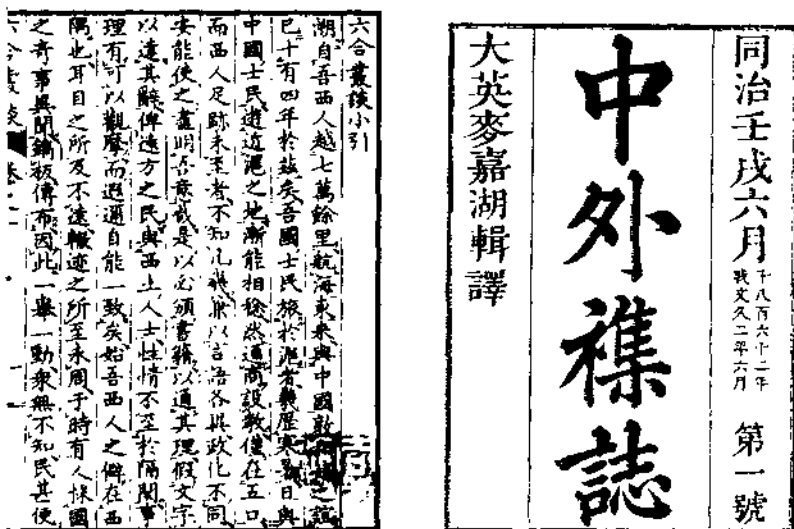 同治壬戌六月
千八百六十二年
我文久二年六月
第一號
中外襍誌
大英麥嘉湖輯譯
六合叢談小引
溯自吾西人越七萬餘里航海東來與中國敦之誼
已十有四年於茲矣吾國士民旅於滬者幾歷寒暑日與
中國士民遊近滬之地漸能相稔然通商設教僅在五口
而西人足跡未至者不知凡幾兼以言語各異政化不同
安能使之盡明吾意哉是以必頒書籍以通其理假文字
以達其辭俾遠方之民與西土人士性情不至於隔閡事
理有可以觀摩而遐邇自能一致矣始吾西人之僻在西
隅也耳目之所及不遠轍迹之所至未周于時有人採國
之奇事異聞鐫板傳布因此一舉一動衆無不知民甚便
六合叢談